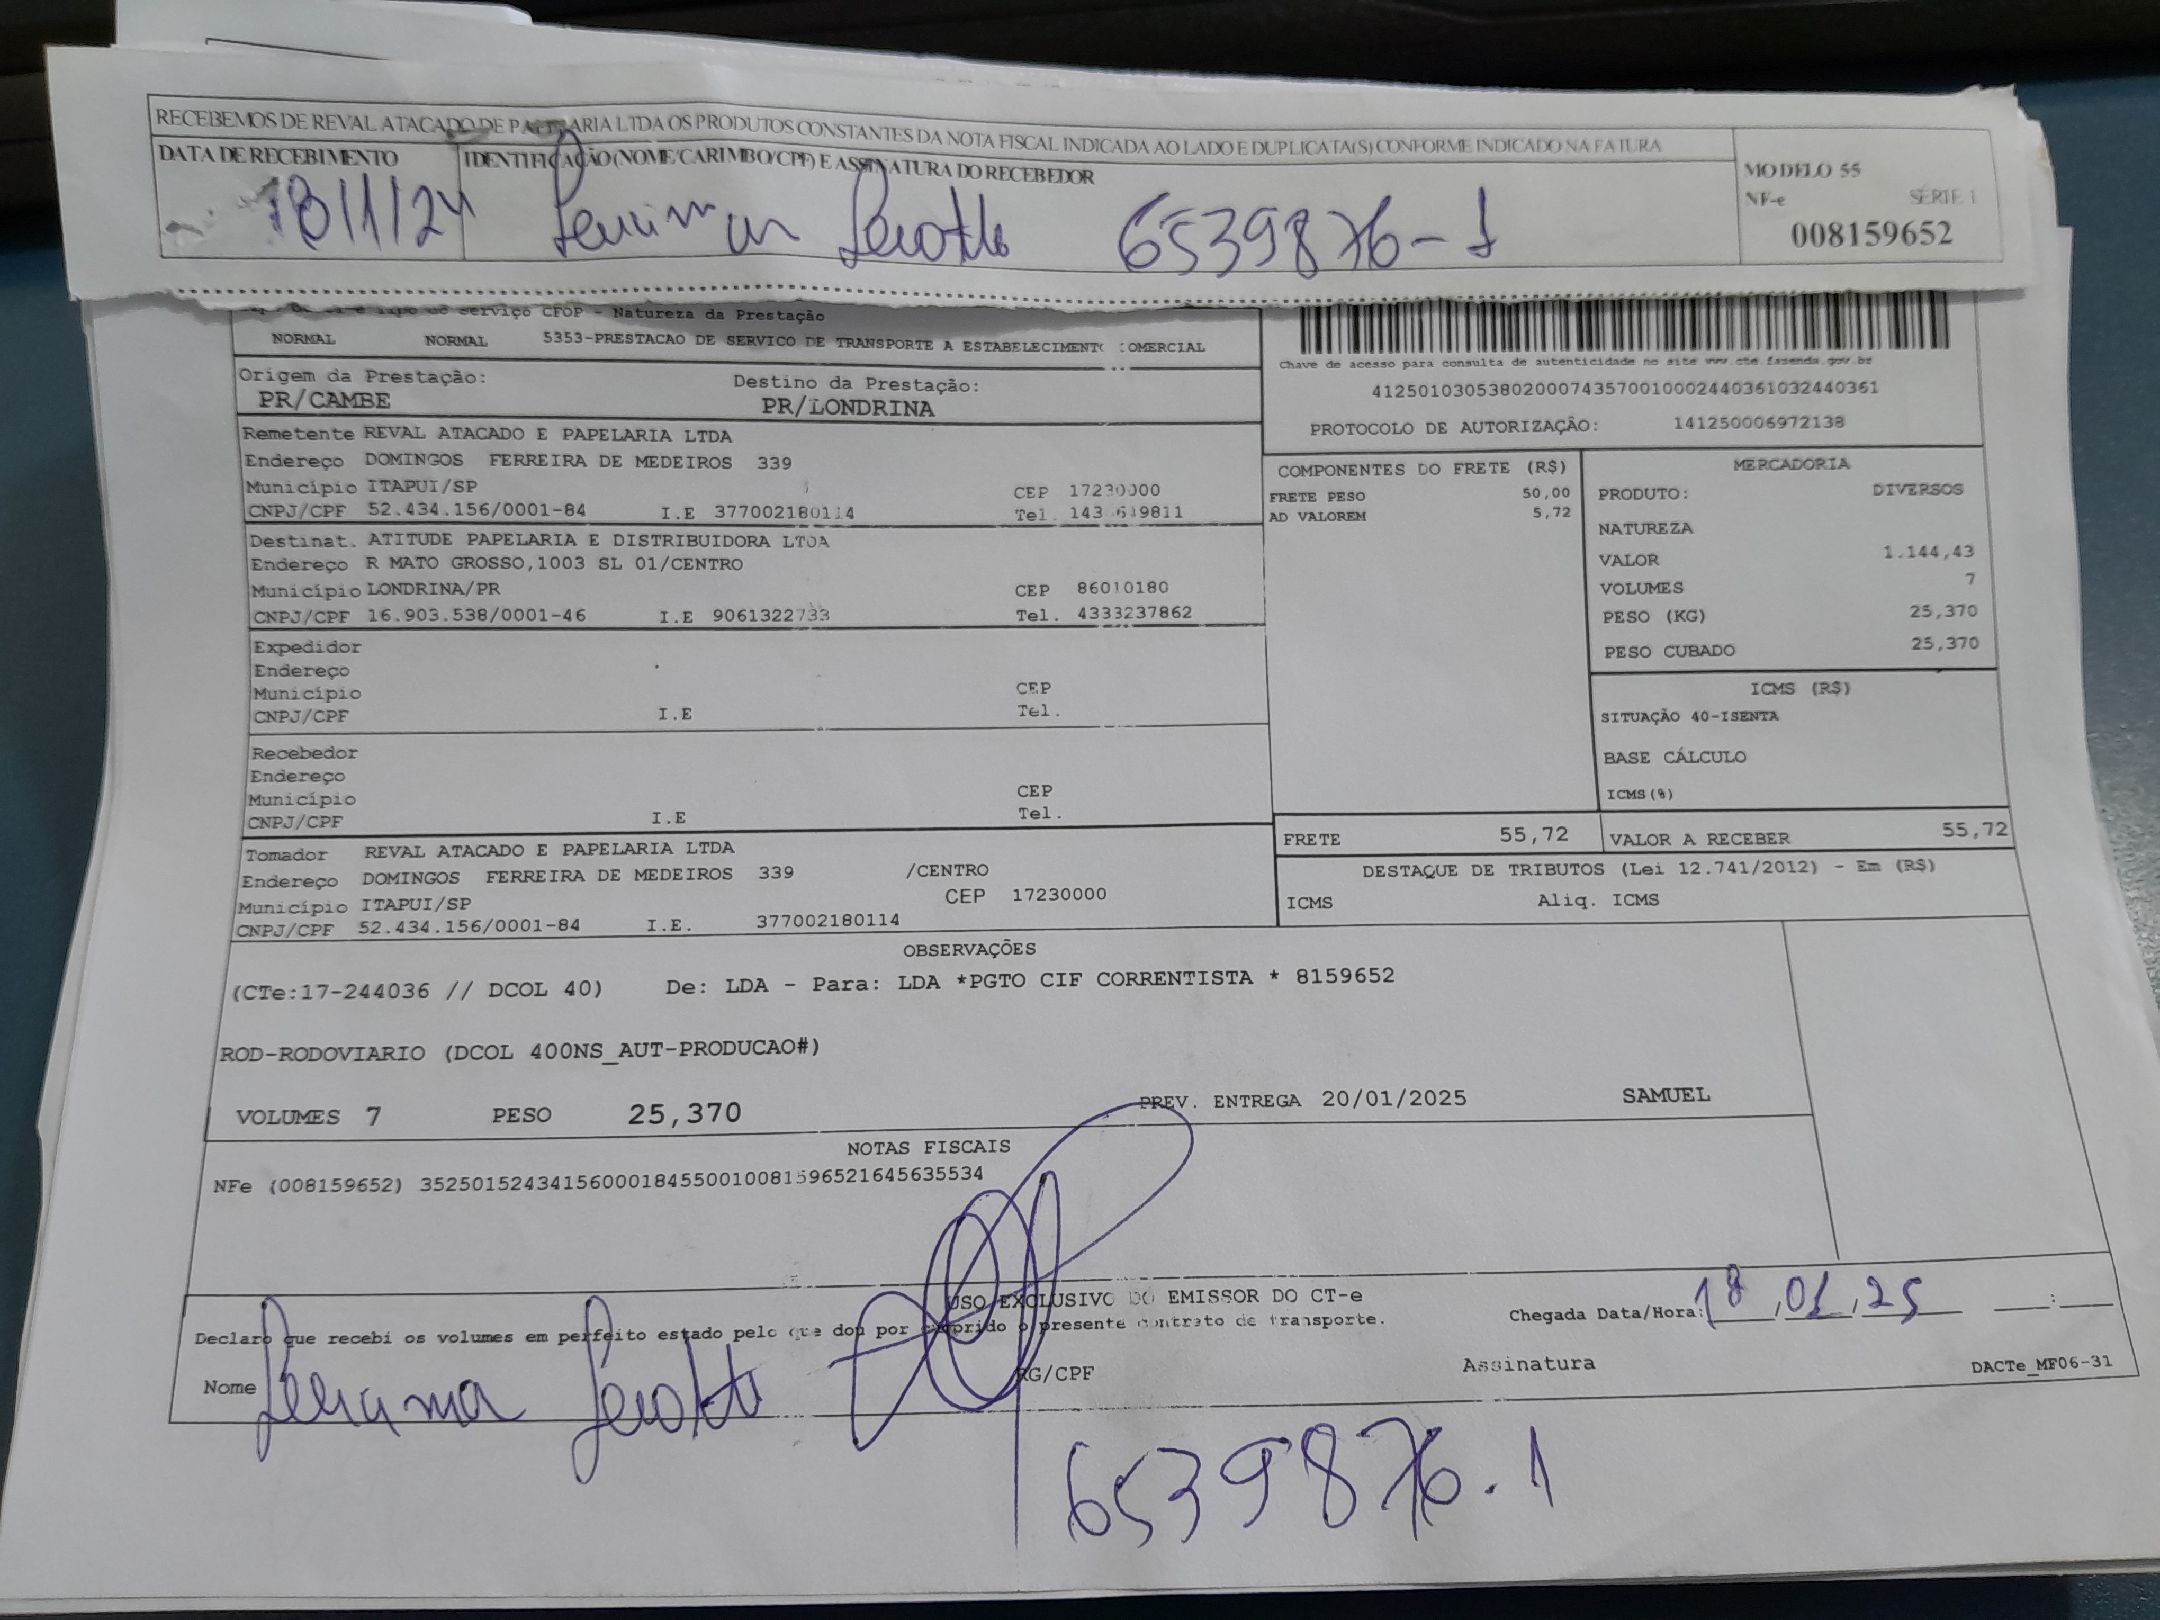 RECEBEMOS DE REVAL ATACADO DE PAPELARIA LTDA OS PRODUTOS CONSTANTES DA NOTA FISCAL INDICADA AO LADO E DUPLICATA(S) CONFORME INDICADO NA FATURA
DATA DE RECEBIMENTO IDENTIFICAÇÃO (NOME/CARIMBO/CPF) E ASSINATURA DO RECEBEDOR
MODELO 55
NF-e SÉRIE 1
008159652
18/1/24 6539876-1
serviço CFOP - Natureza da Prestação
NORMAL NORMAL 5353-PRESTACAO DE SERVICO DE TRANSPORTE A ESTABELECIMENTO COMERCIAL
Chave de acesso para consulta de autenticidade no site www.cte.fazenda.gov.br
41250103053802000743570010002440361032440361
PROTOCOLO DE AUTORIZAÇÃO: 141250006972138
Origem da Prestação: Destino da Prestação:
PR/CAMBE PR/LONDRINA
Remetente REVAL ATACADO E PAPELARIA LTDA
Endereço DOMINGOS FERREIRA DE MEDEIROS 339
Município ITAPUI/SP CEP 17230000
CNPJ/CPF 52.434.156/0001-84 I.E 377002180114 Tel.
Destinat. ATITUDE PAPELARIA E DISTRIBUIDORA LTDA
Endereço R MATO GROSSO,1003 SL 01/CENTRO
Município LONDRINA/PR CEP 86010180
CNPJ/CPF 16.903.538/0001-46 I.E 9061322733 Tel. 4333237862
Expedidor
Endereço
Município CEP
CNPJ/CPF I.E Tel.
Recebedor
Endereço
Município CEP
CNPJ/CPF I.E Tel.
Tomador REVAL ATACADO E PAPELARIA LTDA
Endereço DOMINGOS FERREIRA DE MEDEIROS 339 /CENTRO
Município ITAPUI/SP CEP 17230000
CNPJ/CPF 52.434.156/0001-84 I.E. 377002180114
COMPONENTES DO FRETE (R$)
FRETE PESO 50,00
AD VALOREM 5,72
MERCADORIA
PRODUTO: DIVERSOS
NATUREZA
VALOR 1.144,43
VOLUMES 7
PESO (KG) 25,370
PESO CUBADO 25,370
ICMS (R$)
SITUAÇÃO 40-ISENTA
BASE CÁLCULO
ICMS(%)
FRETE 55,72 VALOR A RECEBER 55,72
DESTAQUE DE TRIBUTOS (Lei 12.741/2012) - Em (R$)
ICMS Aliq. ICMS
OBSERVAÇÕES
(CTe:17-244036 // DCOL 40) De: LDA - Para: LDA *PGTO CIF CORRENTISTA * 8159652
ROD-RODOVIARIO (DCOL 400NS_AUT-PRODUCAO#)
VOLUMES 7 PESO 25,370 PREV. ENTREGA 20/01/2025 SAMUEL
NOTAS FISCAIS
NFe (008159652) 35250152434156000184550010081596521645635534
USO EXCLUSIVO DO EMISSOR DO CT-e
Declaro que recebi os volumes em perfeito estado pelo que dou por cumprido o presente contrato de transporte.
Chegada Data/Hora: 18,01,25 :
Nome RG/CPF Assinatura DACTe_MF06-31
6539876.1